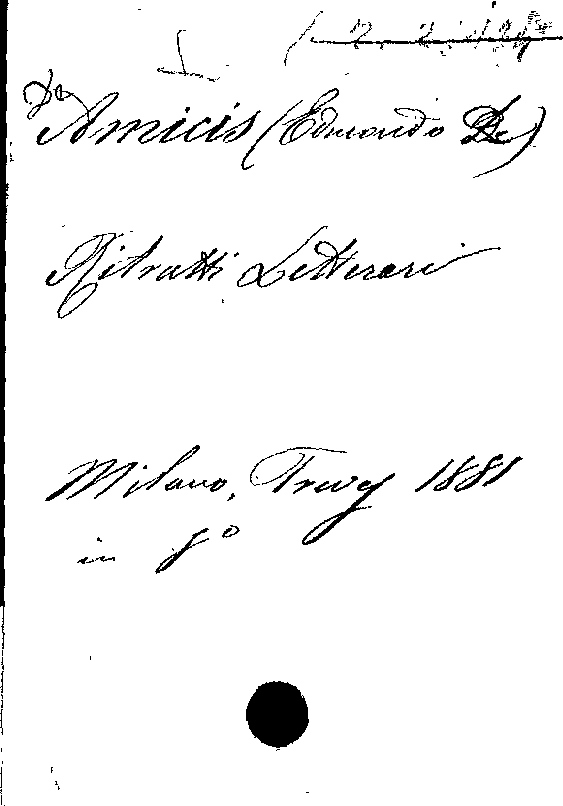 De
Amicis (Edmondo De)
Ritratti Letterari
Milano, Treves 1881
in 8º